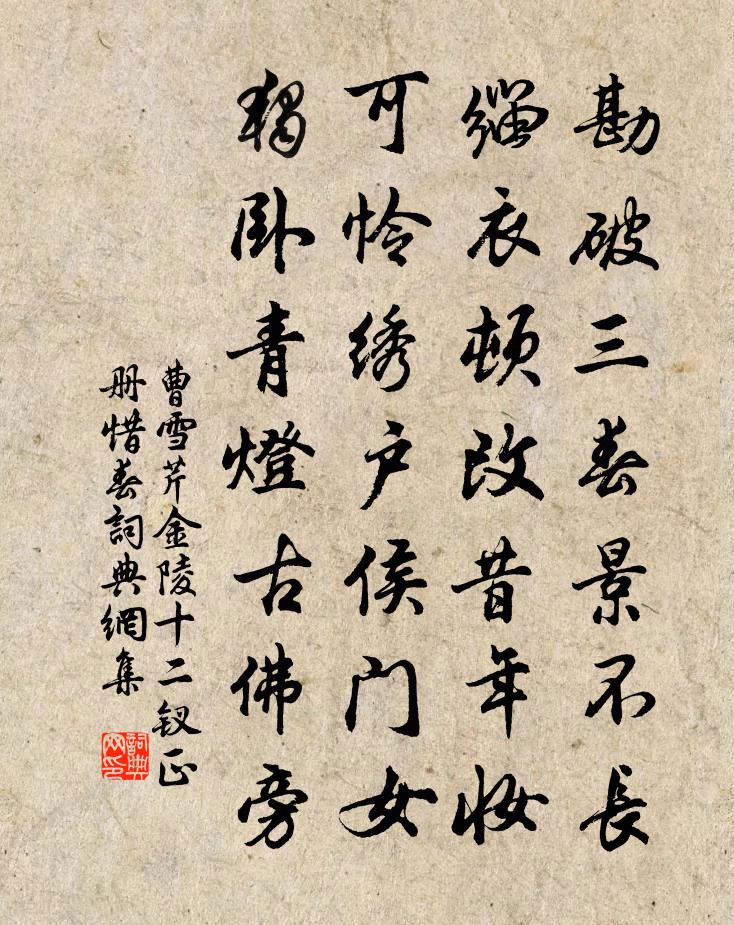 勘破三春景不長
缁衣顿改昔年妆
可怜绣户侯门女
獨卧青燈古佛旁
曹雪芹金陵十二釵正
册惜春詞典網集
詞典网印